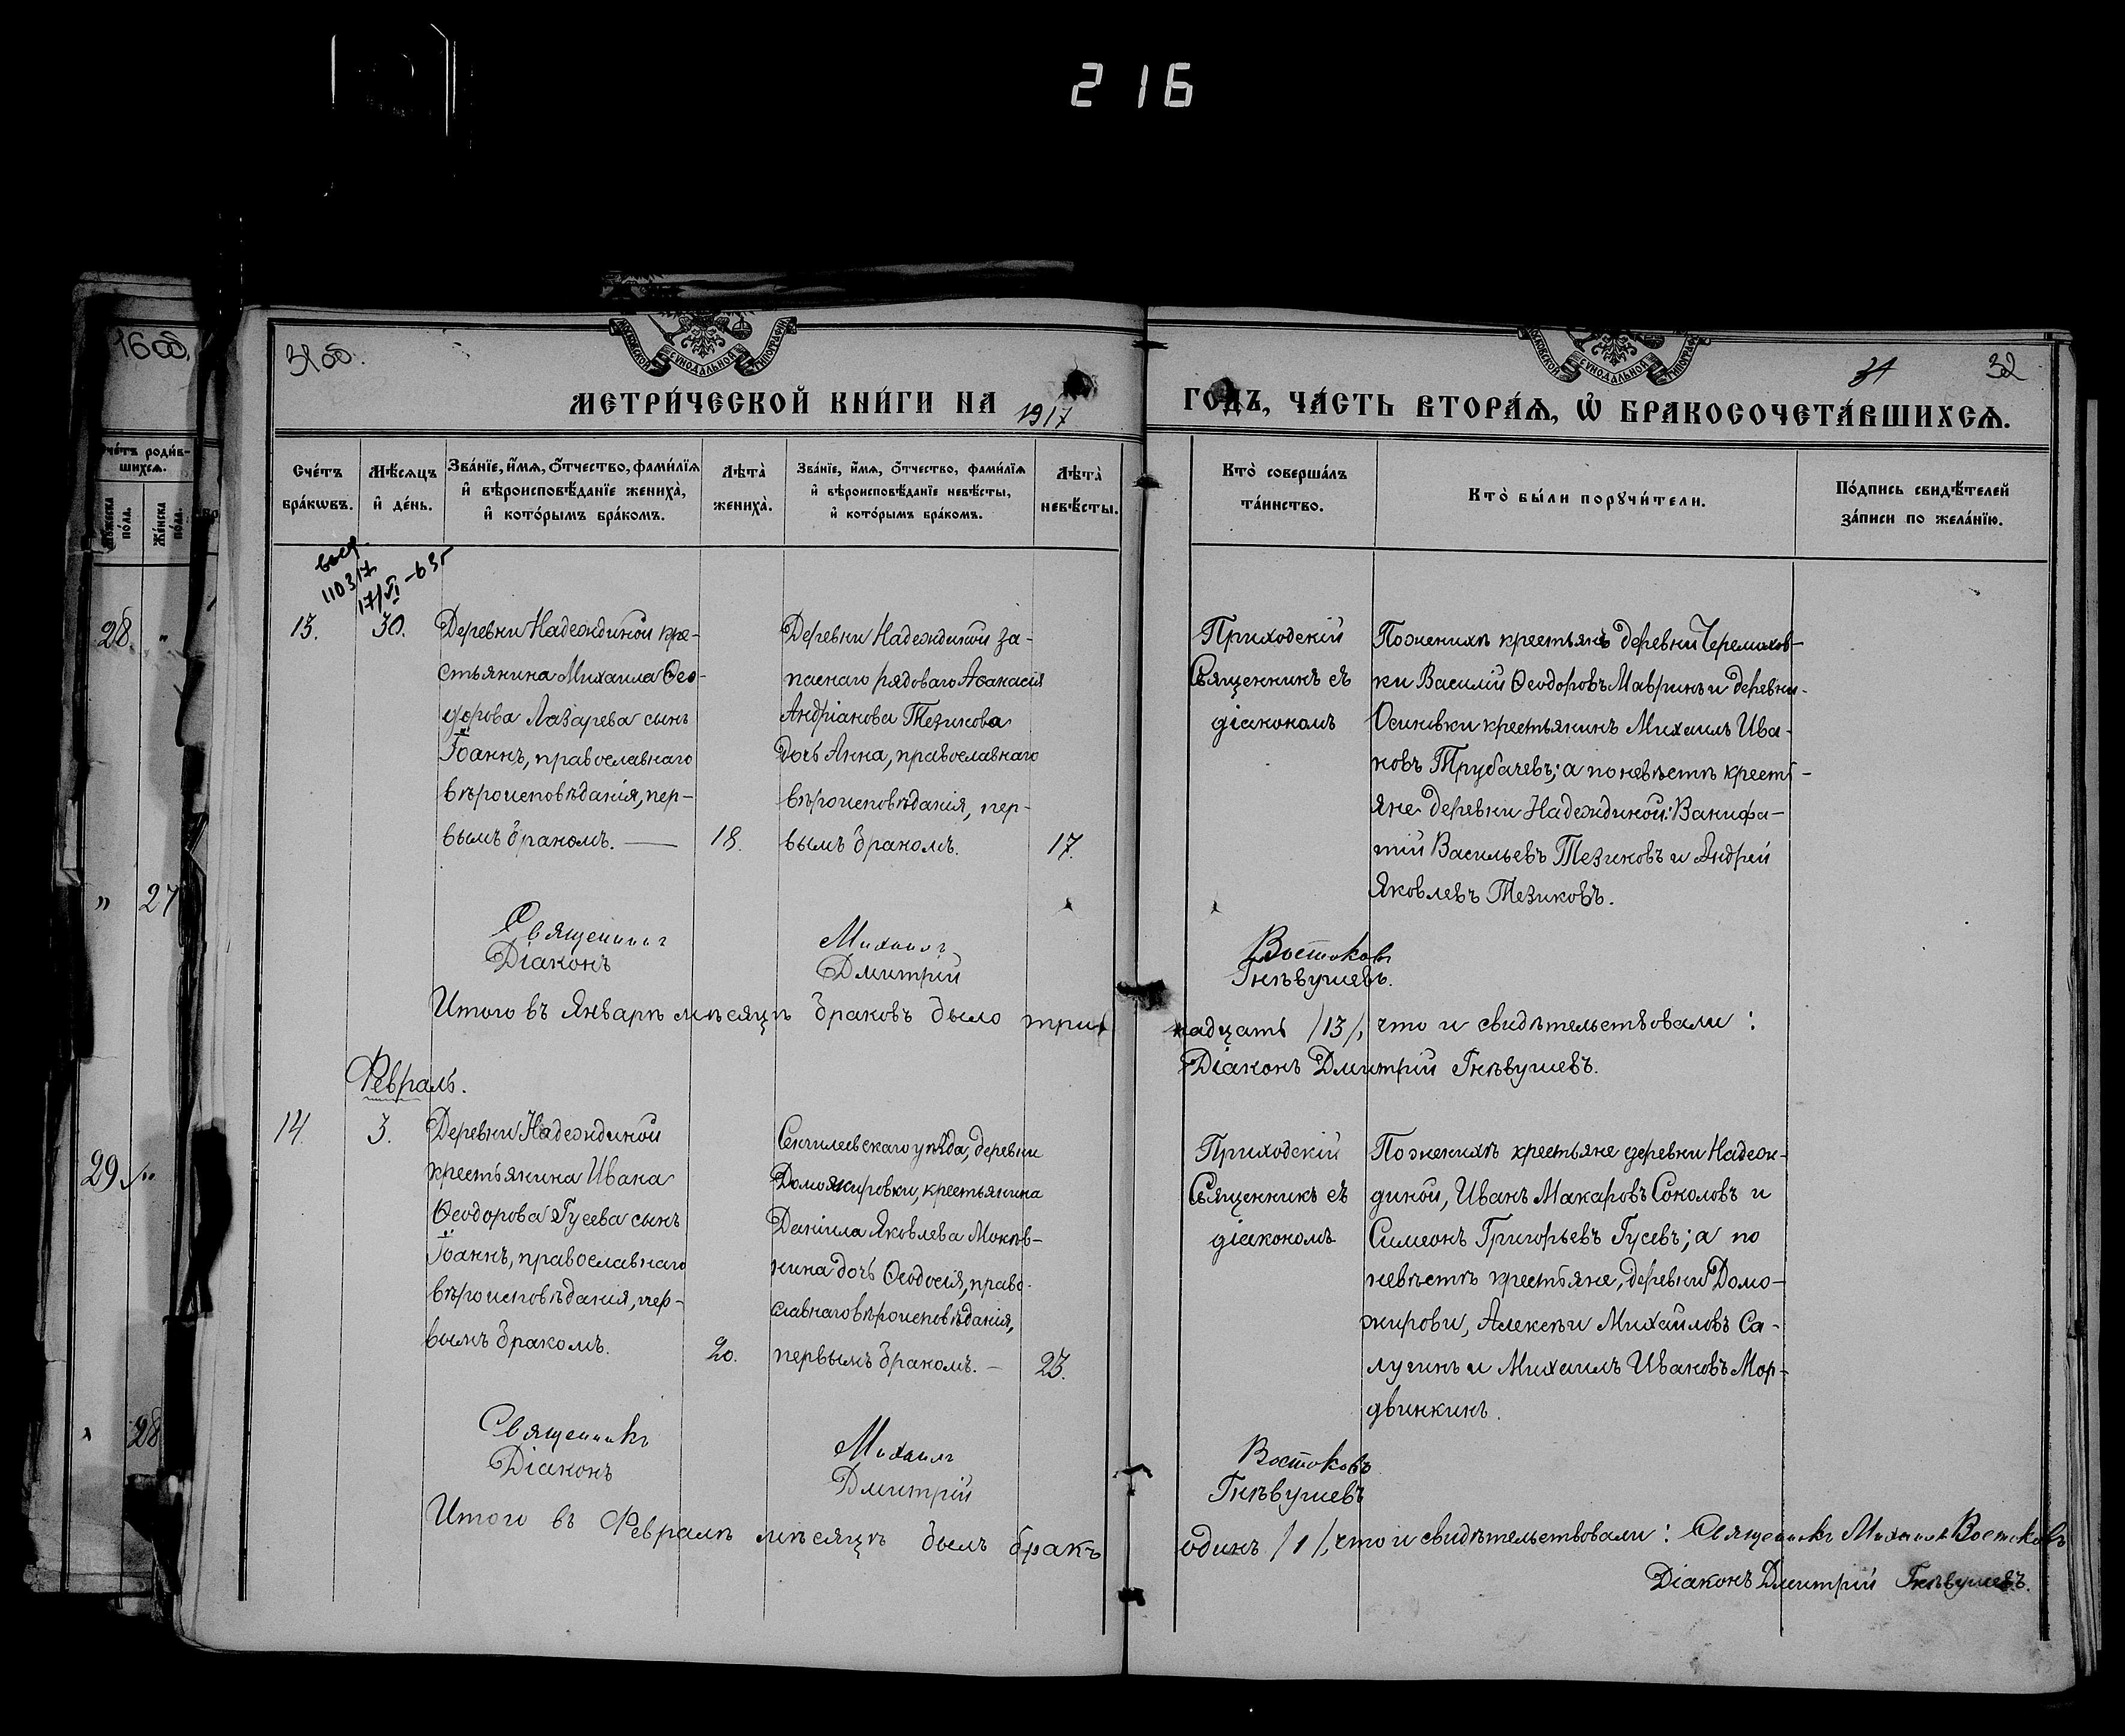 216
16 об.
31 об.
31
32
МОСКОВСКОЙ СѴНОДАЛЬНОЙ ТИПОГРАФІИ
МОСКОВСКОЙ СѴНОДАЛЬНОЙ ТИПОГРАФІИ
МЕТРИ́ЧЕСКОЙ КНИ́ГИ НА 1917 ГОДЪ, ЧА́СТЬ ВТОРА́Ѧ, Ѡ҆ БРАКОСОЧЕТА́ВШИХСѦ.
Сче́тъ роди́в-
шихсѧ.
Мꙋ́жеска по́ла.
Же́нска по́ла.
28. "
" 27
29. "
28
Сче́тъ
бра́кѡвъ.
Мѣ́сѧцъ
и҆ де́нь.
Зва́нїе, и҆́мѧ, ѻ҆́тчество, фами́лїѧ
и҆ вѣроисповѣ́данїе жениха̀,
и҆ кото́рымъ бра́комъ.
Лѣта̀
жениха̀.
Зва́нїе, и҆́мѧ, ѻ҆́тчество, фами́лїѧ
и҆ вѣроисповѣ́данїе невѣ́сты,
и҆ кото́рымъ бра́комъ.
Лѣта̀
невѣ́сты.
Кто̀ соверша́лъ
та́инство.
Кто̀ бы́ли порꙋчи́тели.
По́дпись свидѣ́телей
за́писи по жела́нїю.
110317
17/VI -63г
13.
30.
Деревни Надеждиной кре-
стьянина Михаила Ѳео-
дорова Лазарева сынъ
Іоаннъ, православнаго
вѣроисповѣданія, пер-
вымъ бракомъ. —
18.
Деревни Надеждиной за-
паснаго рядоваго Аѳанасія
Андріанова Тезикова
дочь Анна, православнаго
вѣроисповѣданія, пер-
вымъ бракомъ.
17.
Приходскій
Священникъ съ
діакономъ
По женихѣ крестьянѣ деревни Черемухов-
ки Василій Ѳеодоровъ Мавринъ и деревни
Осиновки крестьянинъ Михаилъ Ива-
новъ Трубачевъ; а по невѣстѣ кресть-
яне деревни Надеждиной:Ванифа-
тій Васильевъ Тезиковъ и Андрей
Яковлевъ Тезиковъ.
Священникъ Михаилъ Востоковъ
Діаконъ Дмитрій Гнѣвушевъ.
Итого въ Январѣ мѣсяцѣ браковъ было три-
надцать /13/, что и свидѣтельствовали:
Діаконъ Дмитрій Гнѣвушевъ.
Февраль.
14.
3.
Деревни Надеждиной
крестьянина Ивана
Ѳеодорова Гусева сынъ
Іоаннъ, православнаго
вѣроисповѣданія, пер-
вымъ бракомъ.
20.
Сенгилеевскаго уѣзда, деревни
Доможировки, крестьянина
Даніила Яковлева Мокѣв-
нина дочь Ѳеодосія, право-
славнаго вѣроисповѣданія,
первымъ бракомъ. —
23.
Приходскій
Священникъ съ
діакономъ
По женихѣ крестьяне деревни Надеж-
диной, Иванъ Макаровъ Соколовъ и
Симеонъ Григорьевъ Гусевъ; а по
невѣстѣ крестьяне, деревни Домо-
жирови, Алексѣи Михайловъ Са-
лугинъ и Михаилъ Ивановъ Мор-
двинкинъ.
Священникъ Михаилъ Востоковъ
Діаконъ Дмитрій Гнѣвушевъ
Итого въ Февралѣ мѣсяцѣ былъ бракъ
одинъ /1/, что и свидѣтельствовали: Священникъ Михаилъ Востоковъ
Діаконъ Дмитрій Гнѣвушевъ.